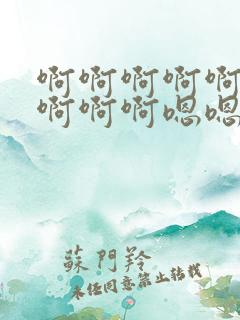 啊啊啊啊啊
啊啊啊嗯嗯
蘇門羚
未经同意禁止转载